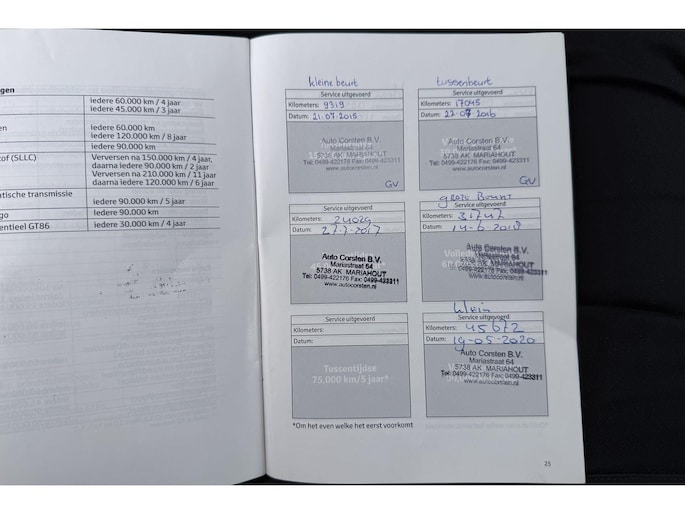 gen
iedere 60.000 km / 4 jaar
iedere 45.000 km / 3 jaar
en
iedere 60.000 km
iedere 120.000 km / 8 jaar
iedere 90.000 km
tof (SLLC)
Verversen na 150.000 km / 4 jaar,
daarna iedere 90.000 km / 2 jaar
Verversen na 210.000 km / 11 jaar
daarna iedere 120.000 km / 6 jaar
atische transmissie
iedere 90.000 km / 5 jaar
go
iedere 90.000 km
entieel GT86
iedere 30.000 km / 4 jaar
kleine beurt
Service uitgevoerd
Kilometers: 9319
Datum: 21-07-2015
Auto Corsten B.V.
Mariastraat 64
5738 AK MARIAHOUT
Tel: 0499-422176 Fax: 0499-423311
GV
tussenbeurt
Service uitgevoerd
Kilometers: 17045
Datum: 27-07-2016
Auto Corsten B.V.
Mariastraat 64
5738 AK MARIAHOUT
Tel: 0499-422176 Fax: 0499-423311
GV
Service uitgevoerd
Kilometers: 24029
Datum: 27-7-2017
Auto Corsten B.V.
Mariastraat 64
5738 AK MARIAHOUT
Tel: 0499-422176 Fax: 0499-423311
www.autocorsten.nl
grote Beurt
Service uitgevoerd
Kilometers: 31747
Datum: 14-6-2018
Auto Corsten B.V.
Mariastraat 64
5738 AK MARIAHOUT
Tel: 0499-422176 Fax: 0499-423311
www.autocorsten.nl
Service uitgevoerd
Kilometers:
Datum:
Tussentijdse
75,000 km/5 jaar*
klein
Service uitgevoerd
Kilometers: 45672
Datum: 19-05-2020
Auto Corsten B.V.
Mariastraat 64
5738 AK MARIAHOUT
Tel: 0499-422176 Fax: 0499-423311
www.autocorsten.nl
*Om het even welke het eerst voorkomt
25